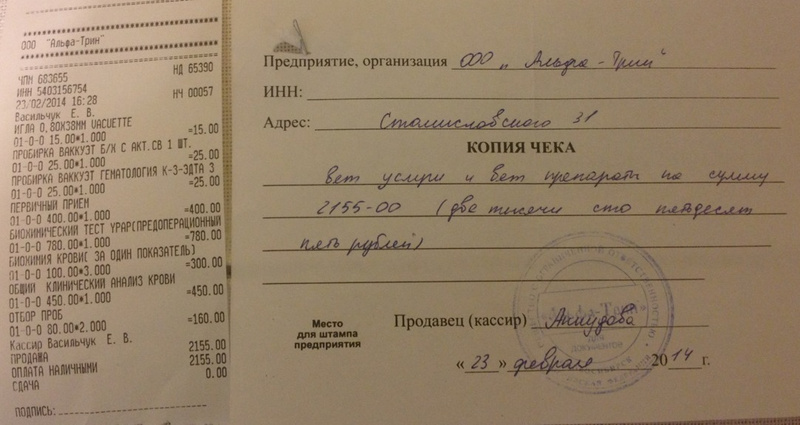 ООО "Альфа-Трин"
ЧПН 683655 НД 65390
ИНН 5403156754
23/02/2014 16:28 НЧ 00057
Васильчук Е. В.
ИГЛА 0,80X38ММ VACUETTE
01-0-0 15.00*1.000 =15.00
ПРОБИРКА ВАККУЭТ Б/Х С АКТ.СВ 1 ШТ.
01-0-0 25.00*1.000 =25.00
ПРОБИРКА ВАККУЭТ ГЕМАТОЛОГИЯ К-3-ЭДТА 3
01-0-0 25.00*1.000 =25.00
ПЕРВИЧНЫЙ ПРИЕМ
01-0-0 400.00*1.000 =400.00
БИОХИМИЧЕСКИЙ ТЕСТ УРАР(ПРЕДОПЕРАЦИОННЫЙ
01-0-0 780.00*1.000 =780.00
БИОХИМИЯ КРОВИ( ЗА ОДИН ПОКАЗАТЕЛЬ)
01-0-0 100.00*3.000 =300.00
ОБЩИЙ КЛИНИЧЕСКИЙ АНАЛИЗ КРОВИ
01-0-0 450.00*1.000 =450.00
ОТБОР ПРОБ
01-0-0 80.00*2.000 =160.00
Кассир Васильчук Е. В.
ПРОДАЖА 2155.00
ОПЛАТА НАЛИЧНЫМИ 2155.00
СДАЧА 0.00
ПОДПИСЬ:
Предприятие, организация ООО „Альфа-Трин"
ИНН:
Адрес: Станиславского 31
КОПИЯ ЧЕКА
Вет услуги и вет препараты на сумму
2155-00 (две тысячи сто пятьдесят
пять рублей)
Продавец (кассир)
Место
для штампа
предприятия
«23» февраля 2014 г.